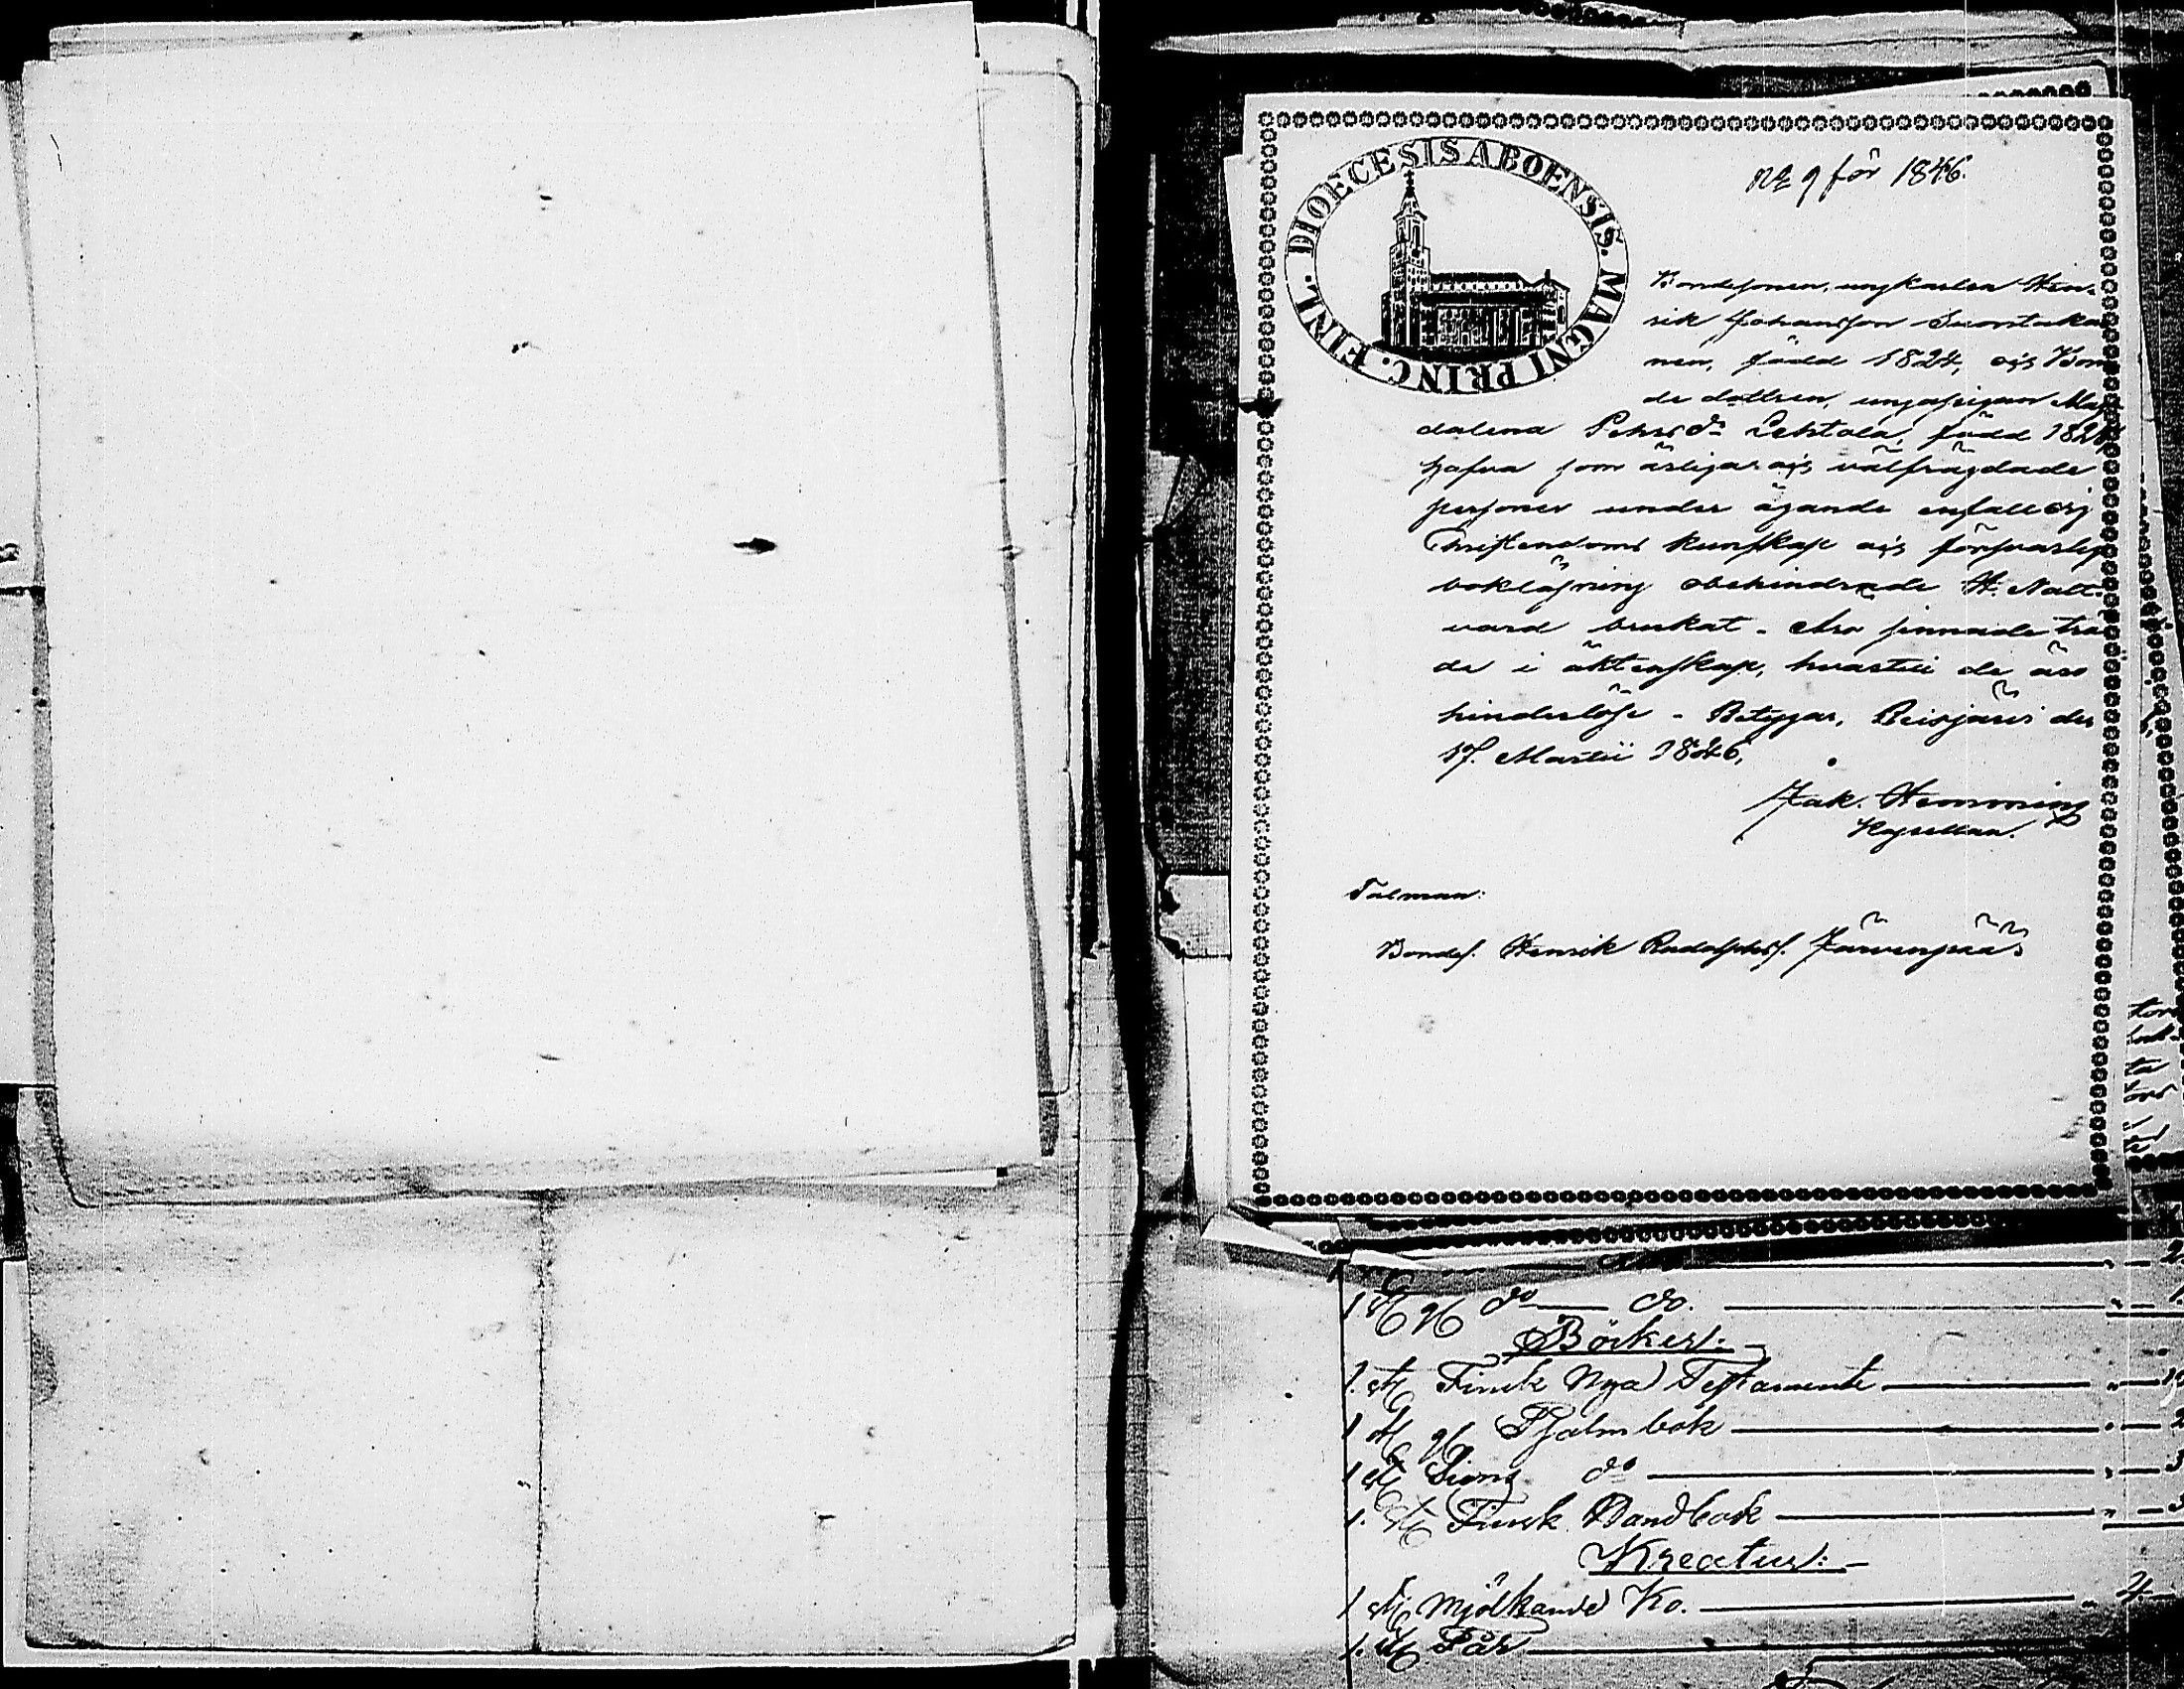 DIOECESIS ABOENSIS. MAGNI PRINC. FINL.
No 9 för 1846.
Bondesonen, ungkarlen Hen-
rik Johansson Suontaka
nen, född 1824, och Bon
de dottren, ungapigan Mag
dalena Pehrsdr Lehtola, född 182
hafva som ärligar och välfrägdade
personer under ägande enfallig
Christendoms kunskap och försvarlig
bokläsning obehindrade H. Natt-
vard brukat. Äro sinnade trä
da i äktenskap, hvartill de äro
hinderlöse - Betygar, Reisjärvi den
17. Martii 1846,
Jak. Hemming
Kapellan.
Talman:
Bondes. Henrik Rudolphss. Järvenpää
1 St do do.
Böcker:
1. St Finsk Nya Testamente
1 St Psalmbok
1 St Sions do
1. St Finsk Handbok
Kreatur:
1 St Mjölkande Ko. 4
1. St Får